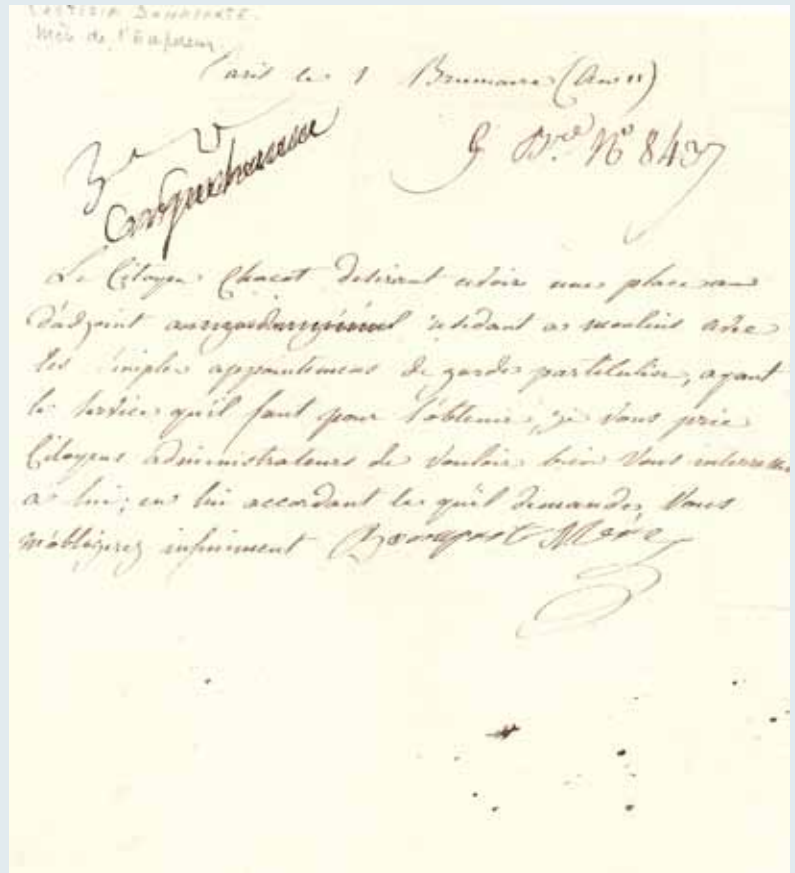 LAETITIA BONAPARTE.
Mère de l'Empereur.
Paris le 1 Brumaire (An 11)
G Bre No 8437
Le Citoyen Chacot désirant avoir une place
d'adjoint résidant a moulins avec
les simples appointemens de garde particulier, ayant
le service qu'il faut pour l'obtenir, je vous prie
Citoyens administrateurs de vouloir bien vous
a lui; en lui accordant ce qu'il demande, vous
m'obligerez infiniment Bonapart Mère